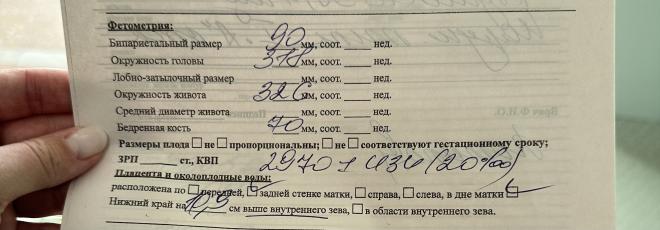 Фетометрия:
Бипариетальный размер 90 мм, соот. ____ нед.
Окружность головы 318 мм, соот. ____ нед.
Лобно-затылочный размер ____ мм, соот. ____ нед.
Окружность живота 326 мм, соот. ____ нед.
Средний диаметр живота ____ мм, соот. ____ нед.
Бедренная кость 70 мм, соот. ____ нед.
Размеры плода □ не □ пропорциональны; □ не □ соответствуют гестационному сроку;
ЗРП ____ ст., КВП 2970 ± 434 (20%)
Плацента и околоплодные воды:
расположена по □ передней, □ задней стенке матки, □ справа, □ слева, в дне матки □
Нижний край на см выше внутреннего зева, □ в области внутреннего зева.